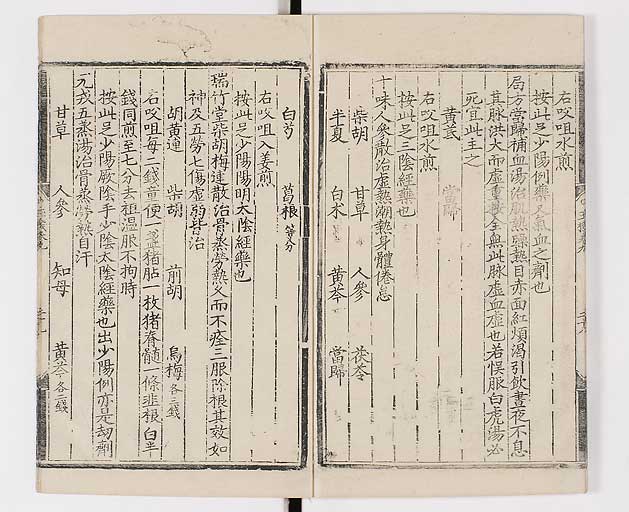 右㕮咀水煎
按此足少陽例藥乃氣血之劑也
局方當歸補血湯治肌熱躁熱目赤面紅煩渴引飲晝夜不息
其脉洪大而虛重按全無此脉虛血虛也若悮服白虎湯必
死宜此主之
黄芪 當歸
右㕮咀水煎
按此足三陰經藥也
十味人參散治虛熱潮熱身體倦怠
柴胡 甘草 人參 茯苓
半夏 白朮 黄芩 當歸
白芍 葛根 等分
右㕮咀入姜煎
按此足少陽陽明太陰經藥也
瑞竹堂柴胡梅連散治骨蒸勞熱久而不痊三服除根其效如
神及五勞七傷虛弱皆治
胡黄連 柴胡 前胡 烏梅 各三錢
右㕮咀每二錢童便一盞猪胆一枚猪脊髓一條韭根白半
錢同煎至七分去柤温服不拘時
按此足少陽厥陰手少陰太陰經藥也出少陽例亦是劫劑
元戎五蒸湯治骨蒸勞熱自汗
甘草 人參 知母 黄芩 各二錢